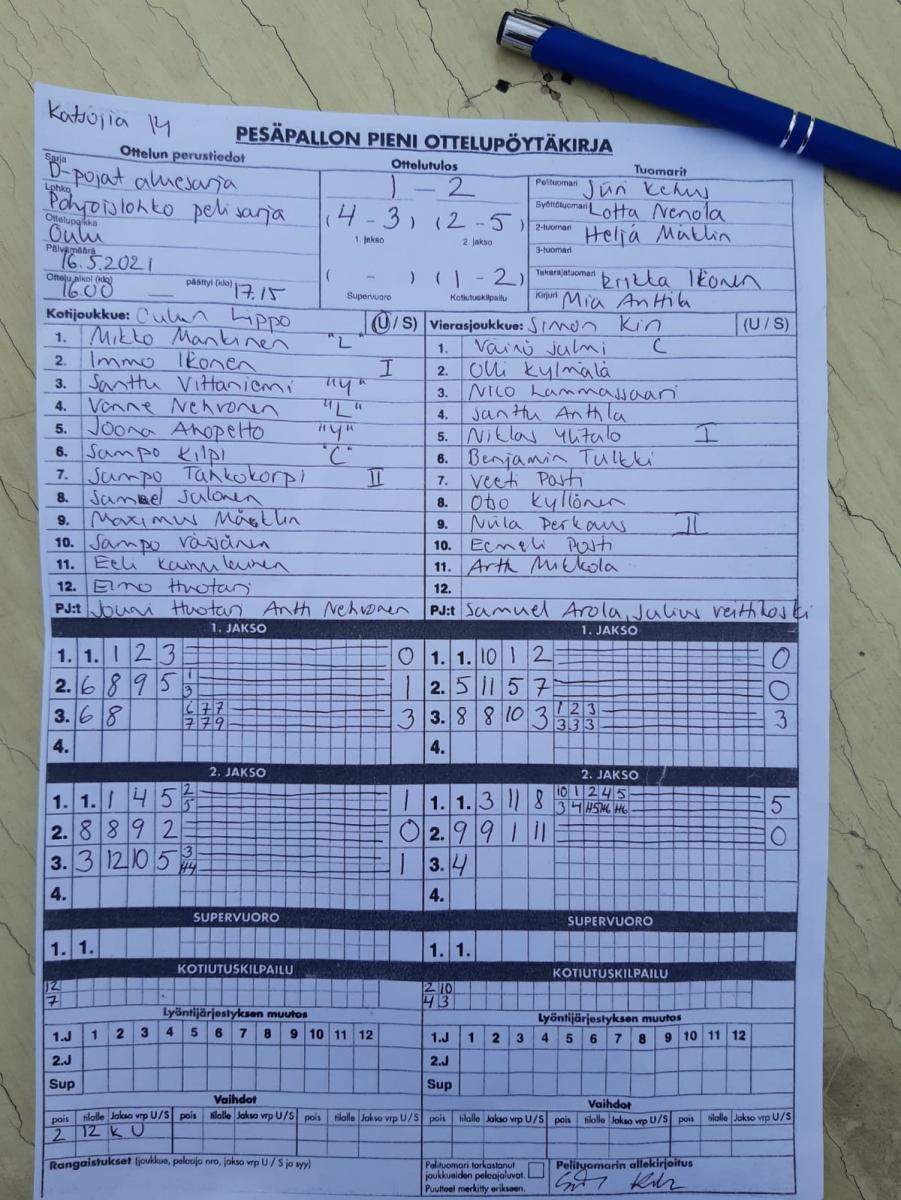 Katsojia 14
PESÄPALLON PIENI OTTELUPÖYTÄKIRJA
Ottelun perustiedot
Sarja D-pojat aluesarja
Lohko Pohjoislohko pelisarja
Ottelupaikka Oulu
Päivämäärä 16.5.2021
Ottelu alkoi (klo) 16.00 päättyi (klo) 17.15
Ottelutulos
1 - 2
(4 - 3) (2 - 5)
1. jakso 2. jakso
( - ) (1 - 2)
Supervuoro Kotiutuskilpailu
Tuomarit
Pelituomari Jüri Kehus
Syöttötuomari Lotta Nenola
2-tuomari Heljä Mäklin
3-tuomari
Takarajatuomari Erikka Ikonen
Kirjuri Mia Anttila
Kotijoukkue: Oulun Lippo (U / S)
1. Mikko Mankinen "L"
2. Immo Ikonen I
3. Santtu Vittaniemi "Y"
4. Vonne Nehvonen "L"
5. Joona Ahopelto "Y"
6. Sampo Kilpi "C"
7. Sampo Tahkokorpi II
8. Samuel Salonen
9. Maximus Mäklin
10. Sampo Väisänen
11. Eeli Kainulainen
12. Elmo Huotari
PJ:t Jouni Huotari Antti Nehvonen
Vierasjoukkue: Simon Kiri (U / S)
1. Väinö Julmi C
2. Olli Kylmälä
3. Nico Lammassaari
4. Santtu Anttila
5. Niklas Ylitalo I
6. Benjamin Tulkki
7. Veeti Posti
8. Otso Kyllönen
9. Niila Perkaus II
10. Eemeli Posti
11. Artti Mikkola
12.
PJ:t Samuel Arola, Julius Veittikoski
1. JAKSO
1. 1. 1 2 3 0
2. 6 8 9 5 1 1
3
3. 6 8 6 7 7 3
7 7 9
4.
1. JAKSO
1. 1. 10 1 2 0
2. 5 11 5 7 0
3. 8 8 10 3 1 2 3 3
3 3 3
4.
2. JAKSO
1. 1. 1 4 5 2 1
5
2. 8 8 9 2 0
3. 3 12 10 5 3 1
H4
4.
2. JAKSO
1. 1. 3 11 8 10 1 2 4 5 5
3 4 H5 H6 H6
2. 9 9 1 11 0
3. 4
4.
SUPERVUORO
1. 1.
SUPERVUORO
1. 1.
KOTIUTUSKILPAILU
12
7
KOTIUTUSKILPAILU
2 10
4 3
Lyöntijärjestyksen muutos
1.J 1 2 3 4 5 6 7 8 9 10 11 12
2.J
Sup
Lyöntijärjestyksen muutos
1.J 1 2 3 4 5 6 7 8 9 10 11 12
2.J
Sup
Vaihdot
pois tilalle Jakso vrp U/S pois tilalle Jakso vrp U/S pois tilalle Jakso vrp U/S
2 12 K U
Vaihdot
pois tilalle Jakso vrp U/S pois tilalle Jakso vrp U/S pois tilalle Jakso vrp U/S
Rangaistukset (joukkue, pelaaja nro, jakso vrp U / S ja syy)
Pelituomari tarkastanut
joukkueiden pelaajaluvat.
Puutteet merkitty erikseen.
Pelituomarin allekirjoitus